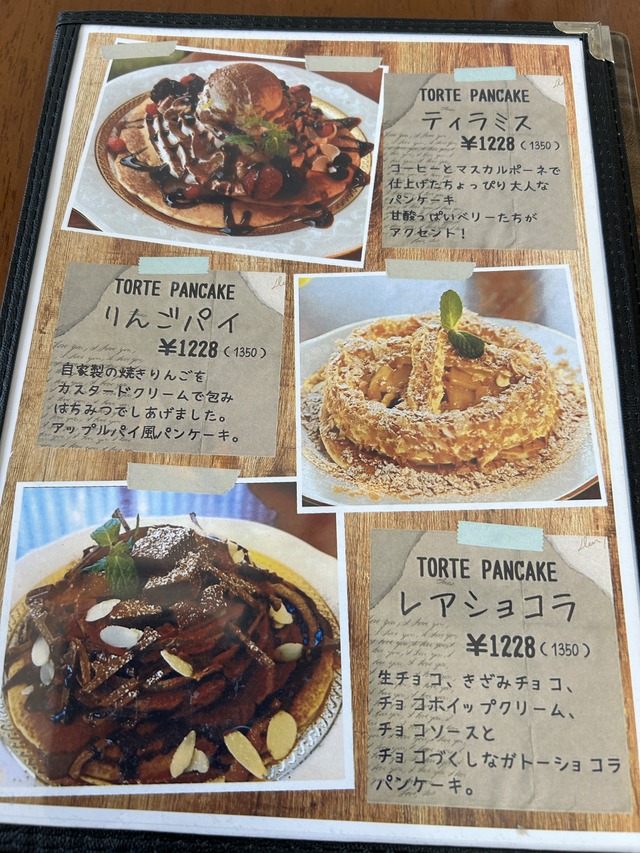 TORTE PANCAKE
ティラミス
¥1228(1350)
コーヒーとマスカルポーネで
仕上げたちょっぴり大人な
パンケーキ
甘酸っぱいベリーたちが
アクセント！
TORTE PANCAKE
りんごパイ
¥1228(1350)
自家製の焼きりんごを
カスタードクリームで包み
はちみつでしあげました。
アップルパイ風パンケーキ。
TORTE PANCAKE
レアショコラ
¥1228(1350)
生チョコ、きざみチョコ、
チョコホイップクリーム、
チョコソースと
チョコづくしなガトーショコラ
パンケーキ。